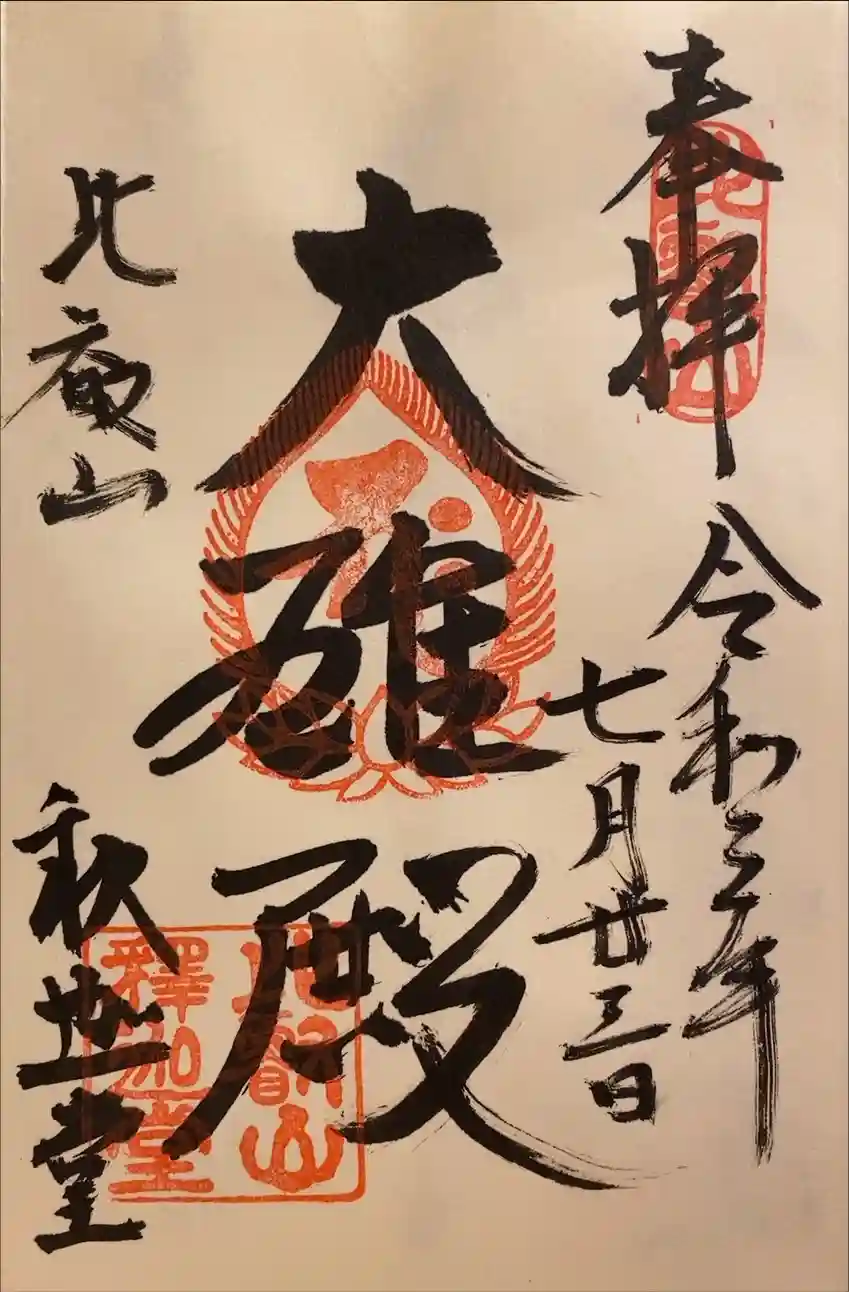 奉拝
令和三年
七月廿三日
大雄殿
比叡山
釈迦堂
比叡山
比叡山
釋迦堂